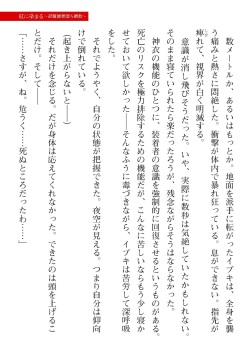 紅に染まる
数メートルか、あるいはもっとか。地面を派手に転がったイブキは、全身を襲
う痛みと熱さに悶絶した。衝撃が体内で暴れ狂っている。息ができない。指先が
痺れて、視界が白く明滅する。
意識が消し飛びそうだった。いや、実際に数秒は気絶していたかもしれない。
そのまま寝ていられたら楽だったろうが、残念ながらそうはならなかった。
神衣の機能のひとつに、装着者の意識を強制的に回復させるというものがある。
死亡のリスクを極力排除するための機能だが、こんなに苦しいならもう少し寝か
せておいて欲しかった――そんなふうに毒づきながら、イブキは苦労して深呼吸
した。
それでようやく、自分の状態が把握できた。夜空が見える。つまり自分は仰向
けで倒れている。
「起き上がらないと――」
それだけを念じる。だが身体は応えてくれなかった。できたのは頭を上げるこ
とだけ。そして――
「……さすが、ね。危うく……死ぬところだったわ……」